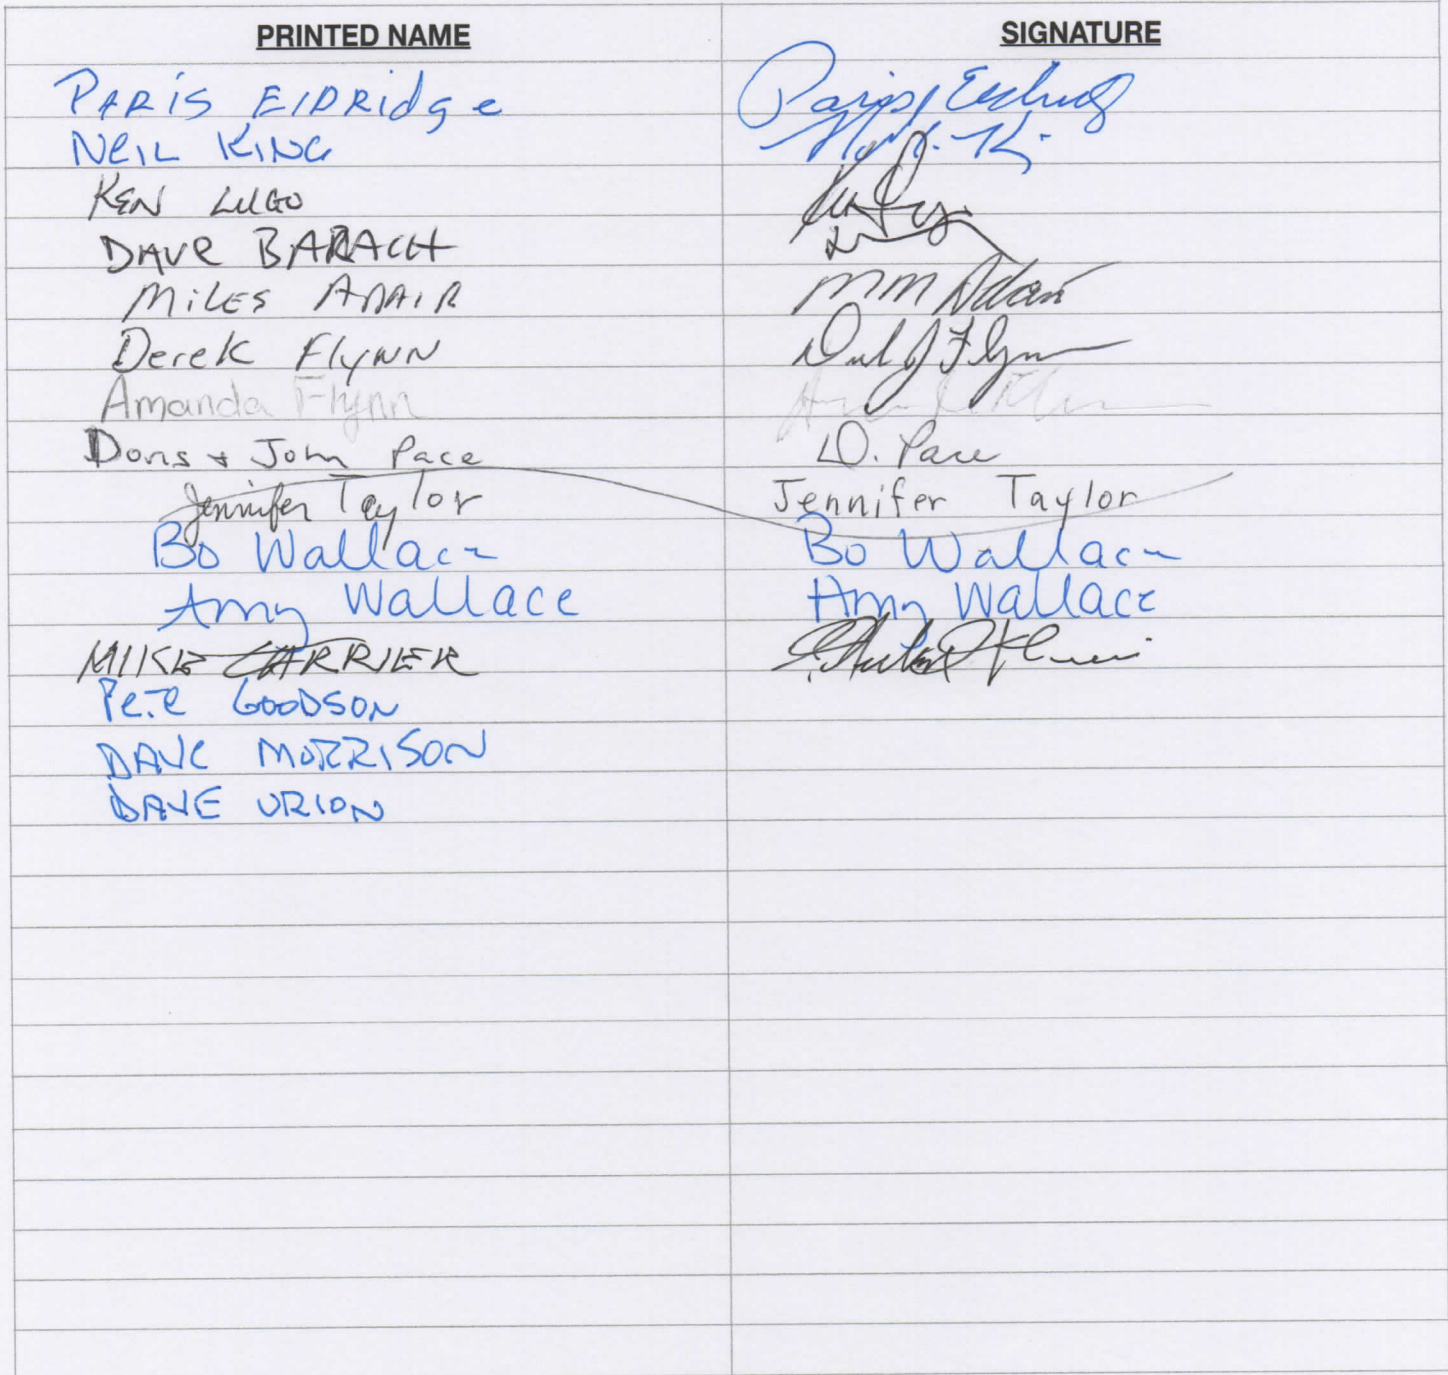 PRINTED NAME SIGNATURE
PARIS ElDRidge Paris Eldridge
NeiL KING
KEN LUGO
DAVE BARACH
MiLES ADAIR MM Adair
Derek Flynn Derek J Flynn
Amanda Flynn
Doris + John Pace D. Pace
Jennifer Taylor Jennifer Taylor
Bo Wallace Bo Wallace
Amy Wallace Amy Wallace
MIKE CARRIER
PeTe GOODSON
DAVE MORRISON
DAVE URION